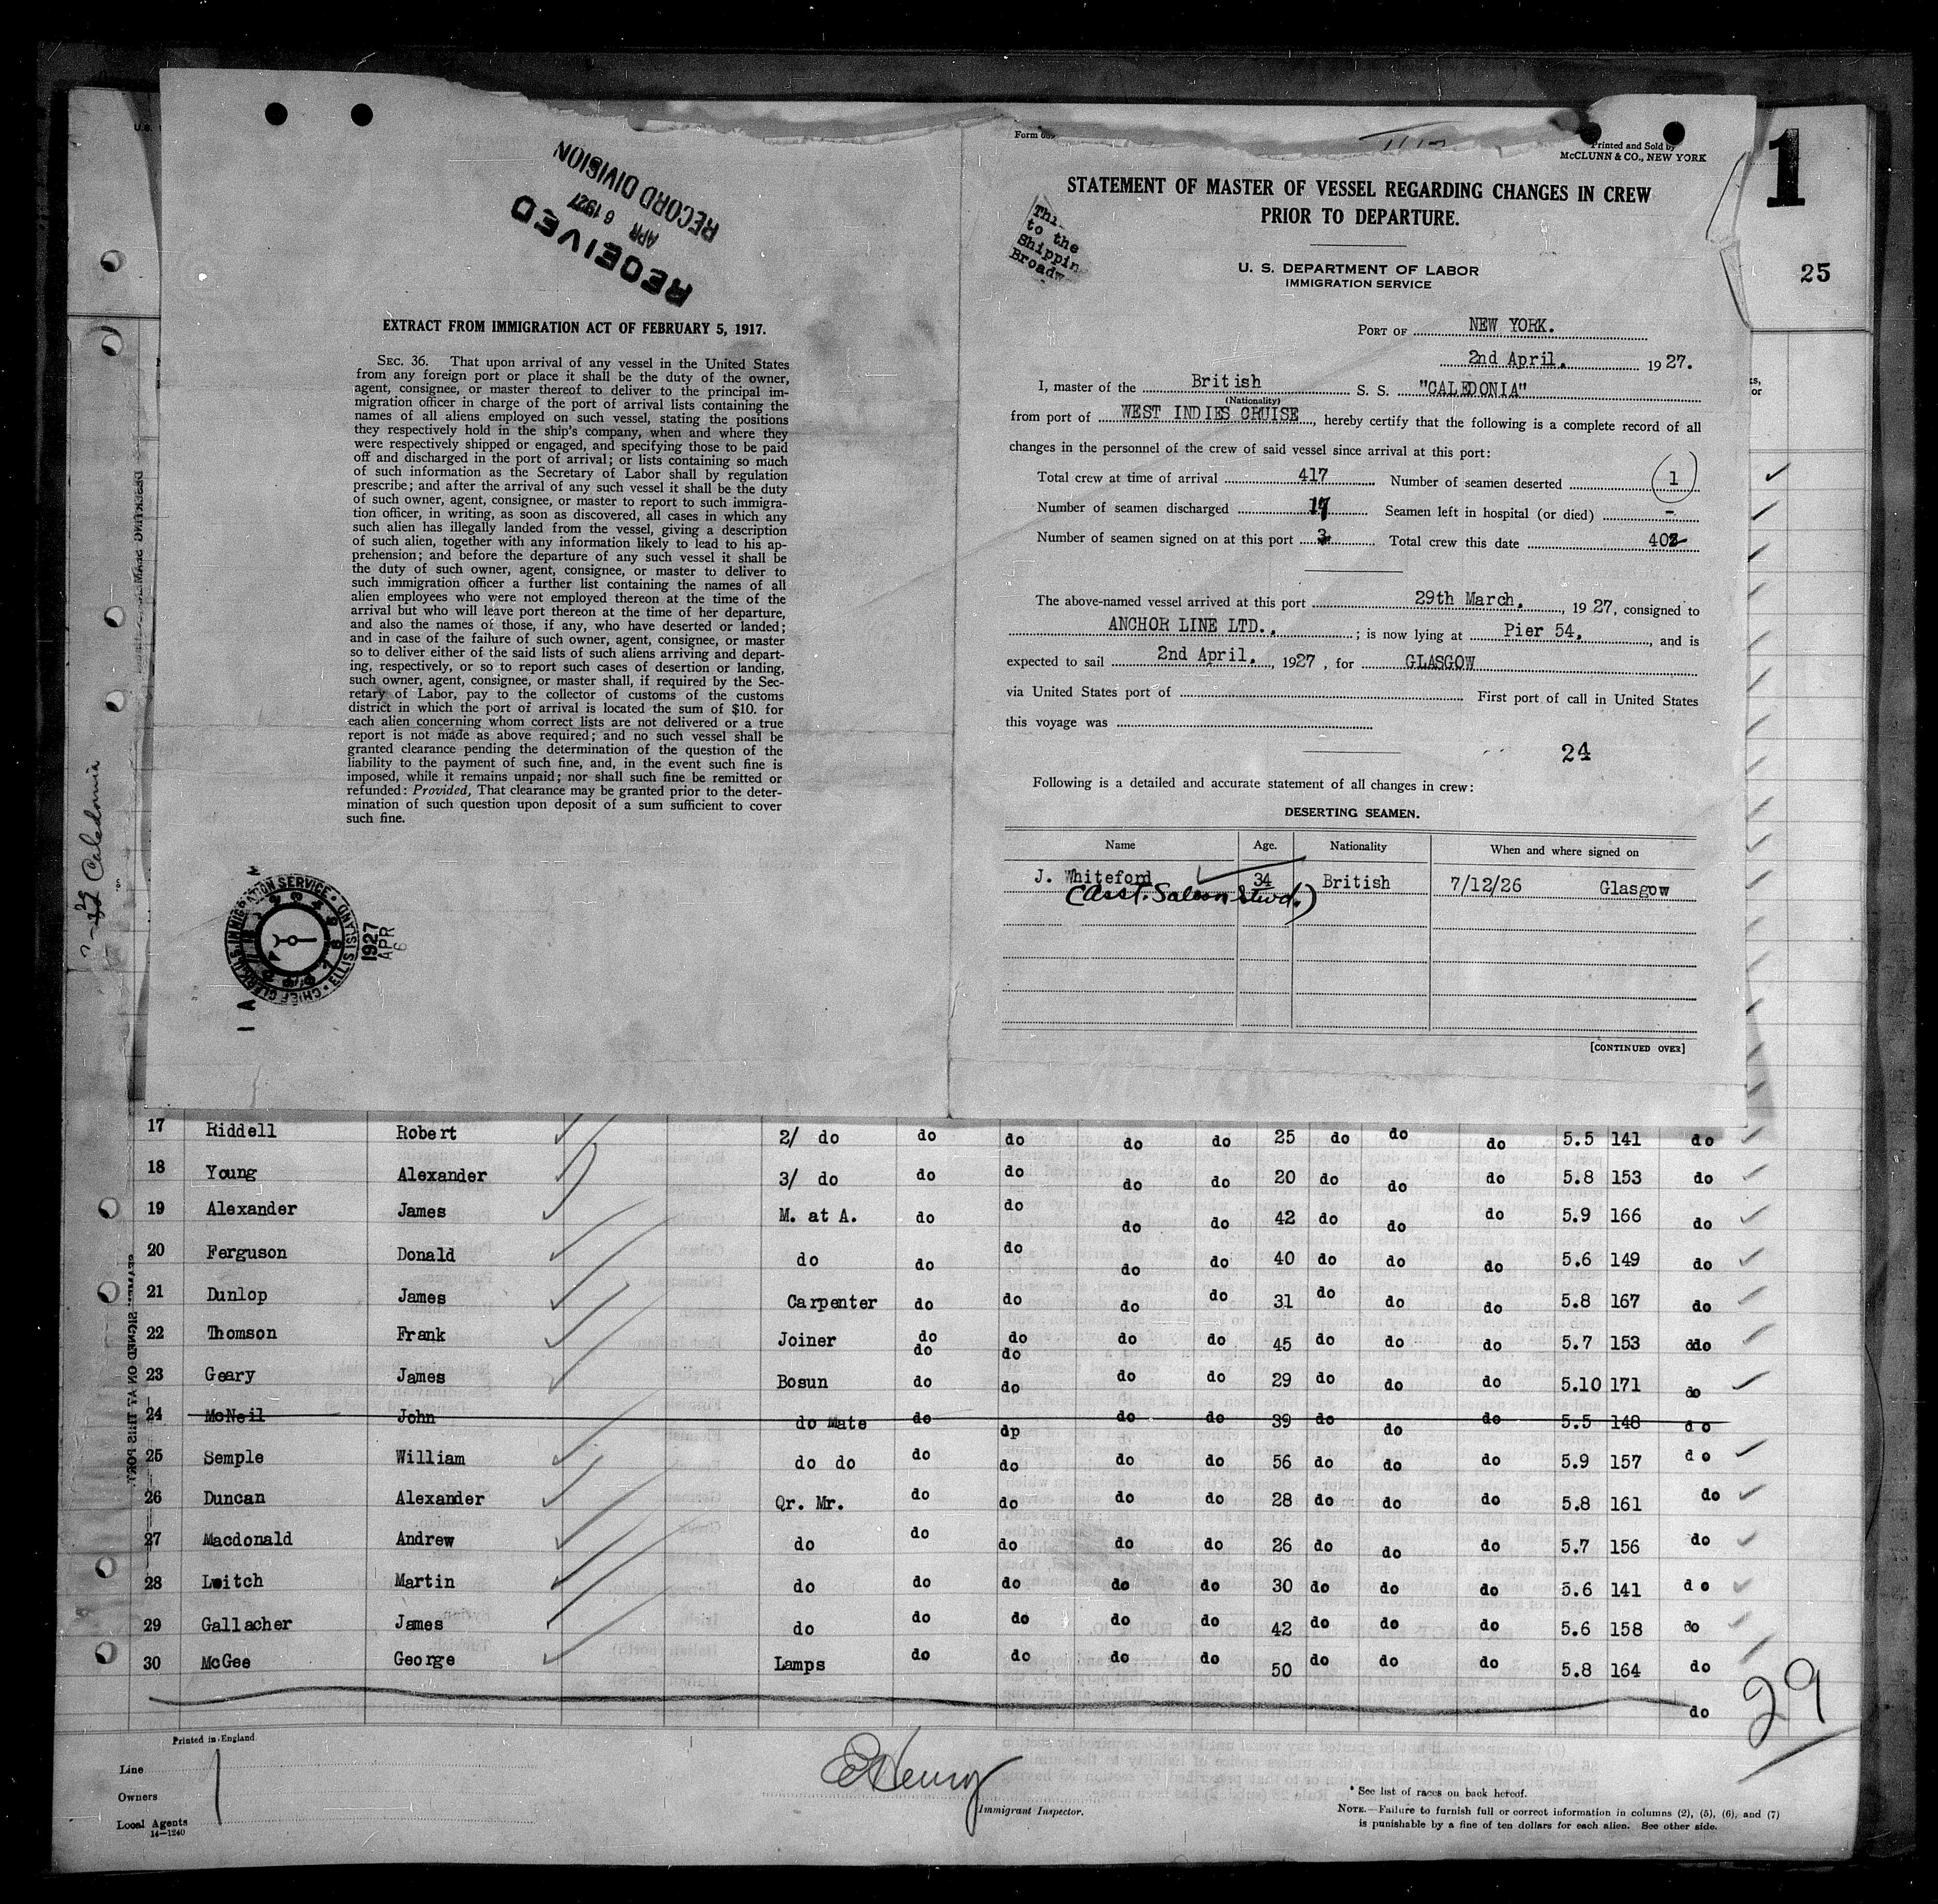 RECEIVED
APR 6 1927
RECORD DIVISION
EXTRACT FROM IMMIGRATION ACT OF FEBRUARY 5, 1917.
SEC. 36. That upon arrival of any vessel in the United States
from any foreign port or place it shall be the duty of the owner,
agent, consignee, or master thereof to deliver to the principal im-
migration officer in charge of the port of arrival lists containing the
names of all aliens employed on such vessel, stating the positions
they respectively hold in the ship's company, when and where they
were respectively shipped or engaged, and specifying those to be paid
off and discharged in the port of arrival; or lists containing so much
of such information as the Secretary of Labor shall by regulation
prescribe; and after the arrival of any such vessel it shall be the duty
of such owner, agent, consignee, or master to report to such immigra-
tion officer, in writing, as soon as discovered, all cases in which any
such alien has illegally landed from the vessel, giving a description
of such alien, together with any information likely to lead to his ap-
prehension; and before the departure of any such vessel it shall be
the duty of such owner, agent, consignee, or master to deliver to
such immigration officer a further list containing the names of all
alien employees who were not employed thereon at the time of the
arrival but who will leave port thereon at the time of her departure,
and also the names of those, if any, who have deserted or landed;
and in case of the failure of such owner, agent, consignee, or master
so to deliver either of the said lists of such aliens arriving and depart-
ing, respectively, or so to report such cases of desertion or landing,
such owner, agent, consignee, or master shall, if required by the Sec-
retary of Labor, pay to the collector of customs of the customs
district in which the port of arrival is located the sum of $10. for
each alien concerning whom correct lists are not delivered or a true
report is not made as above required; and no such vessel shall be
granted clearance pending the determination of the question of the
liability to the payment of such fine, and, in the event such fine is
imposed, while it remains unpaid; nor shall such fine be remitted or
refunded: Provided, That clearance may be granted prior to the deter-
mination of such question upon deposit of a sum sufficient to cover
such fine.
Caledonia
1927
APR
6
Form
Printed and Sold by
McCLUNN & CO., NEW YORK
1
25
STATEMENT OF MASTER OF VESSEL REGARDING CHANGES IN CREW
PRIOR TO DEPARTURE.
to the
Shippin
Broadw
U. S. DEPARTMENT OF LABOR
IMMIGRATION SERVICE
PORT OF NEW YORK.
2nd April, 1927.
I, master of the British S. S. "CALEDONIA"
(Nationality)
from port of WEST INDIES CRUISE, hereby certify that the following is a complete record of all
changes in the personnel of the crew of said vessel since arrival at this port:
Total crew at time of arrival 417 Number of seamen deserted 1
Number of seamen discharged 17 Seamen left in hospital (or died) -
Number of seamen signed on at this port 3 Total crew this date 402
The above-named vessel arrived at this port 29th March, 1927, consigned to
ANCHOR LINE LTD., ; is now lying at Pier 54, and is
expected to sail 2nd April, 1927, for GLASGOW
via United States port of First port of call in United States
this voyage was
24
Following is a detailed and accurate statement of all changes in crew:
DESERTING SEAMEN.
Name Age. Nationality When and where signed on
J. Whiteford 34 British 7/12/26 Glasgow
(Asst. Saloon Stwd.)
[CONTINUED OVER]
17 Riddell Robert 2/ do do do do do 25 do do do 5.5 141 do
18 Young Alexander 3/ do do do do do 20 do do do 5.8 153 do
19 Alexander James M. at A. do do do do 42 do do do 5.9 166 do
20 Ferguson Donald do do do do do 40 do do do 5.6 149 do
21 Dunlop James Carpenter do do do do 31 do do do 5.8 167 do
22 Thomson Frank Joiner do do do do 45 do do do 5.7 153 ddo
do do
23 Geary James Bosun do do do do 29 do do do 5.10 171 do
24 McNeil John do Mate do dp do do 39 do do do 5.5 148 do
25 Semple William do do do do do do 56 do do do 5.9 157 do
26 Duncan Alexander Qr. Mr. do do do do 28 do do do 5.8 161 do
27 Macdonald Andrew do do do do do 26 do do do 5.7 156 do
28 Leitch Martin do do do do do 30 do do do 5.6 141 do
29 Gallacher James do do do do do 42 do do do 5.6 158 do
30 McGee George Lamps do do do do 50 do do do 5.8 164 do
do
29
Printed in England
Line
Owners
Local Agents
14-1240
E Henry
Immigrant Inspector.
* See list of races on back hereof.
NOTE.—Failure to furnish full or correct information in columns (2), (5), (6), and (7)
is punishable by a fine of ten dollars for each alien. See other side.